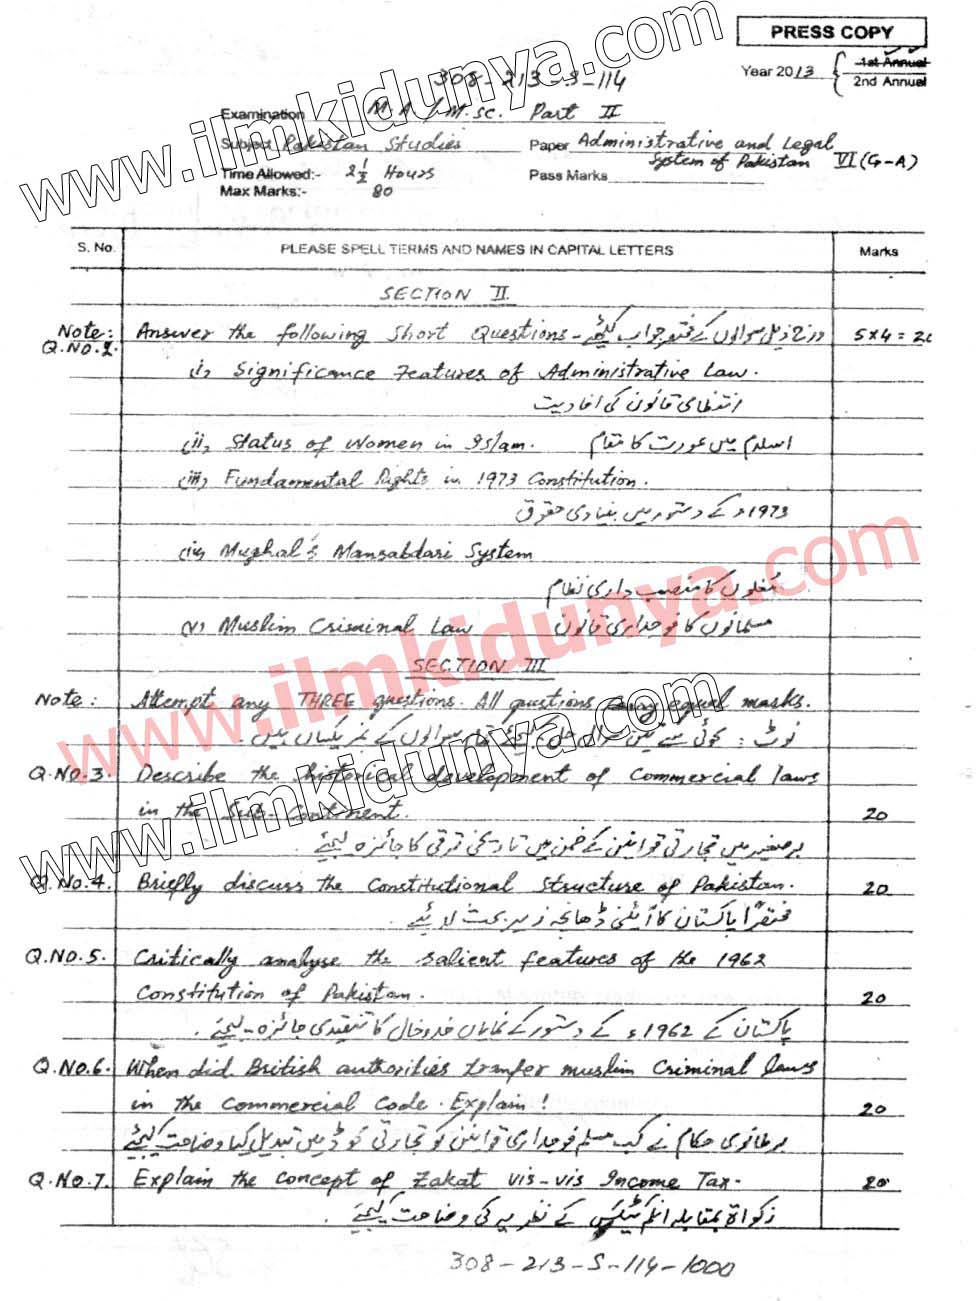 PRESS COPY
308-213-S-114
Year 2013 { 1st Annual
2nd Annual
Examination M.A / M.Sc. Part II
Subject Pakistan Studies Paper Administrative and Legal
System of Pakistan VI (G-A)
Time Allowed:- 2½ Hours Pass Marks
Max Marks:- 80
www.ilmkidunya.com
S. No. PLEASE SPELL TERMS AND NAMES IN CAPITAL LETTERS Marks
SECTION II.
Note: Answer the following Short Questions - درج ذیل سوالوں کے مختصر جواب لکھیئے 5x4=20
Q.NO.2.
(i) Significance Features of Administrative Law.
انتظامی قانون کی افادیت
(ii) Status of Women in Islam. اسلام میں عورت کا مقام
(iii) Fundamental Rights in 1973 Constitution.
1973ء کے دستور میں بنیادی حقوق
(iv) Mughal's Mansabdari System
مغلوں کا منصب داری نظام
(v) Muslim Criminal Law مسلمانوں کا فوجداری قانون
SECTION III
www.ilmkidunya.com
Note: Attempt any THREE questions. All questions carry equal marks.
نوٹ: کوئی سے تین سوال حل کیجئے تمام سوالوں کے نمبر یکساں ہیں.
Q.NO.3. Describe the historical development of Commercial laws
in the Sub-Continent. 20
برصغیر میں تجارتی قوانین کے ضمن میں تاریخی ترقی کا جائزہ لیجئے
www.ilmkidunya.com
Q.No.4. Briefly discuss the Constitutional Structure of Pakistan. 20
مختصراً پاکستان کا آئینی ڈھانچہ زیر بحث لائیے.
Q.NO.5. Critically analyse the salient features of the 1962
Constitution of Pakistan. 20
پاکستان کے 1962ء کے دستور کے نمایاں خدوخال کا تنقیدی جائزہ لیجئے.
Q.NO.6. When did British authorities tranfer muslim Criminal laws
in the Commercial Code. Explain! 20
برطانوی حکام نے کب مسلم فوجداری قوانین کو تجارتی کوڈ میں تبدیل کیا وضاحت کیجئے
Q.NO.7. Explain the concept of Zakat vis-vis Income Tax. 20
زکواة بمقابلہ انکم ٹیکس کے نظریہ کی وضاحت کیجئے.
308-213-S-114-1000